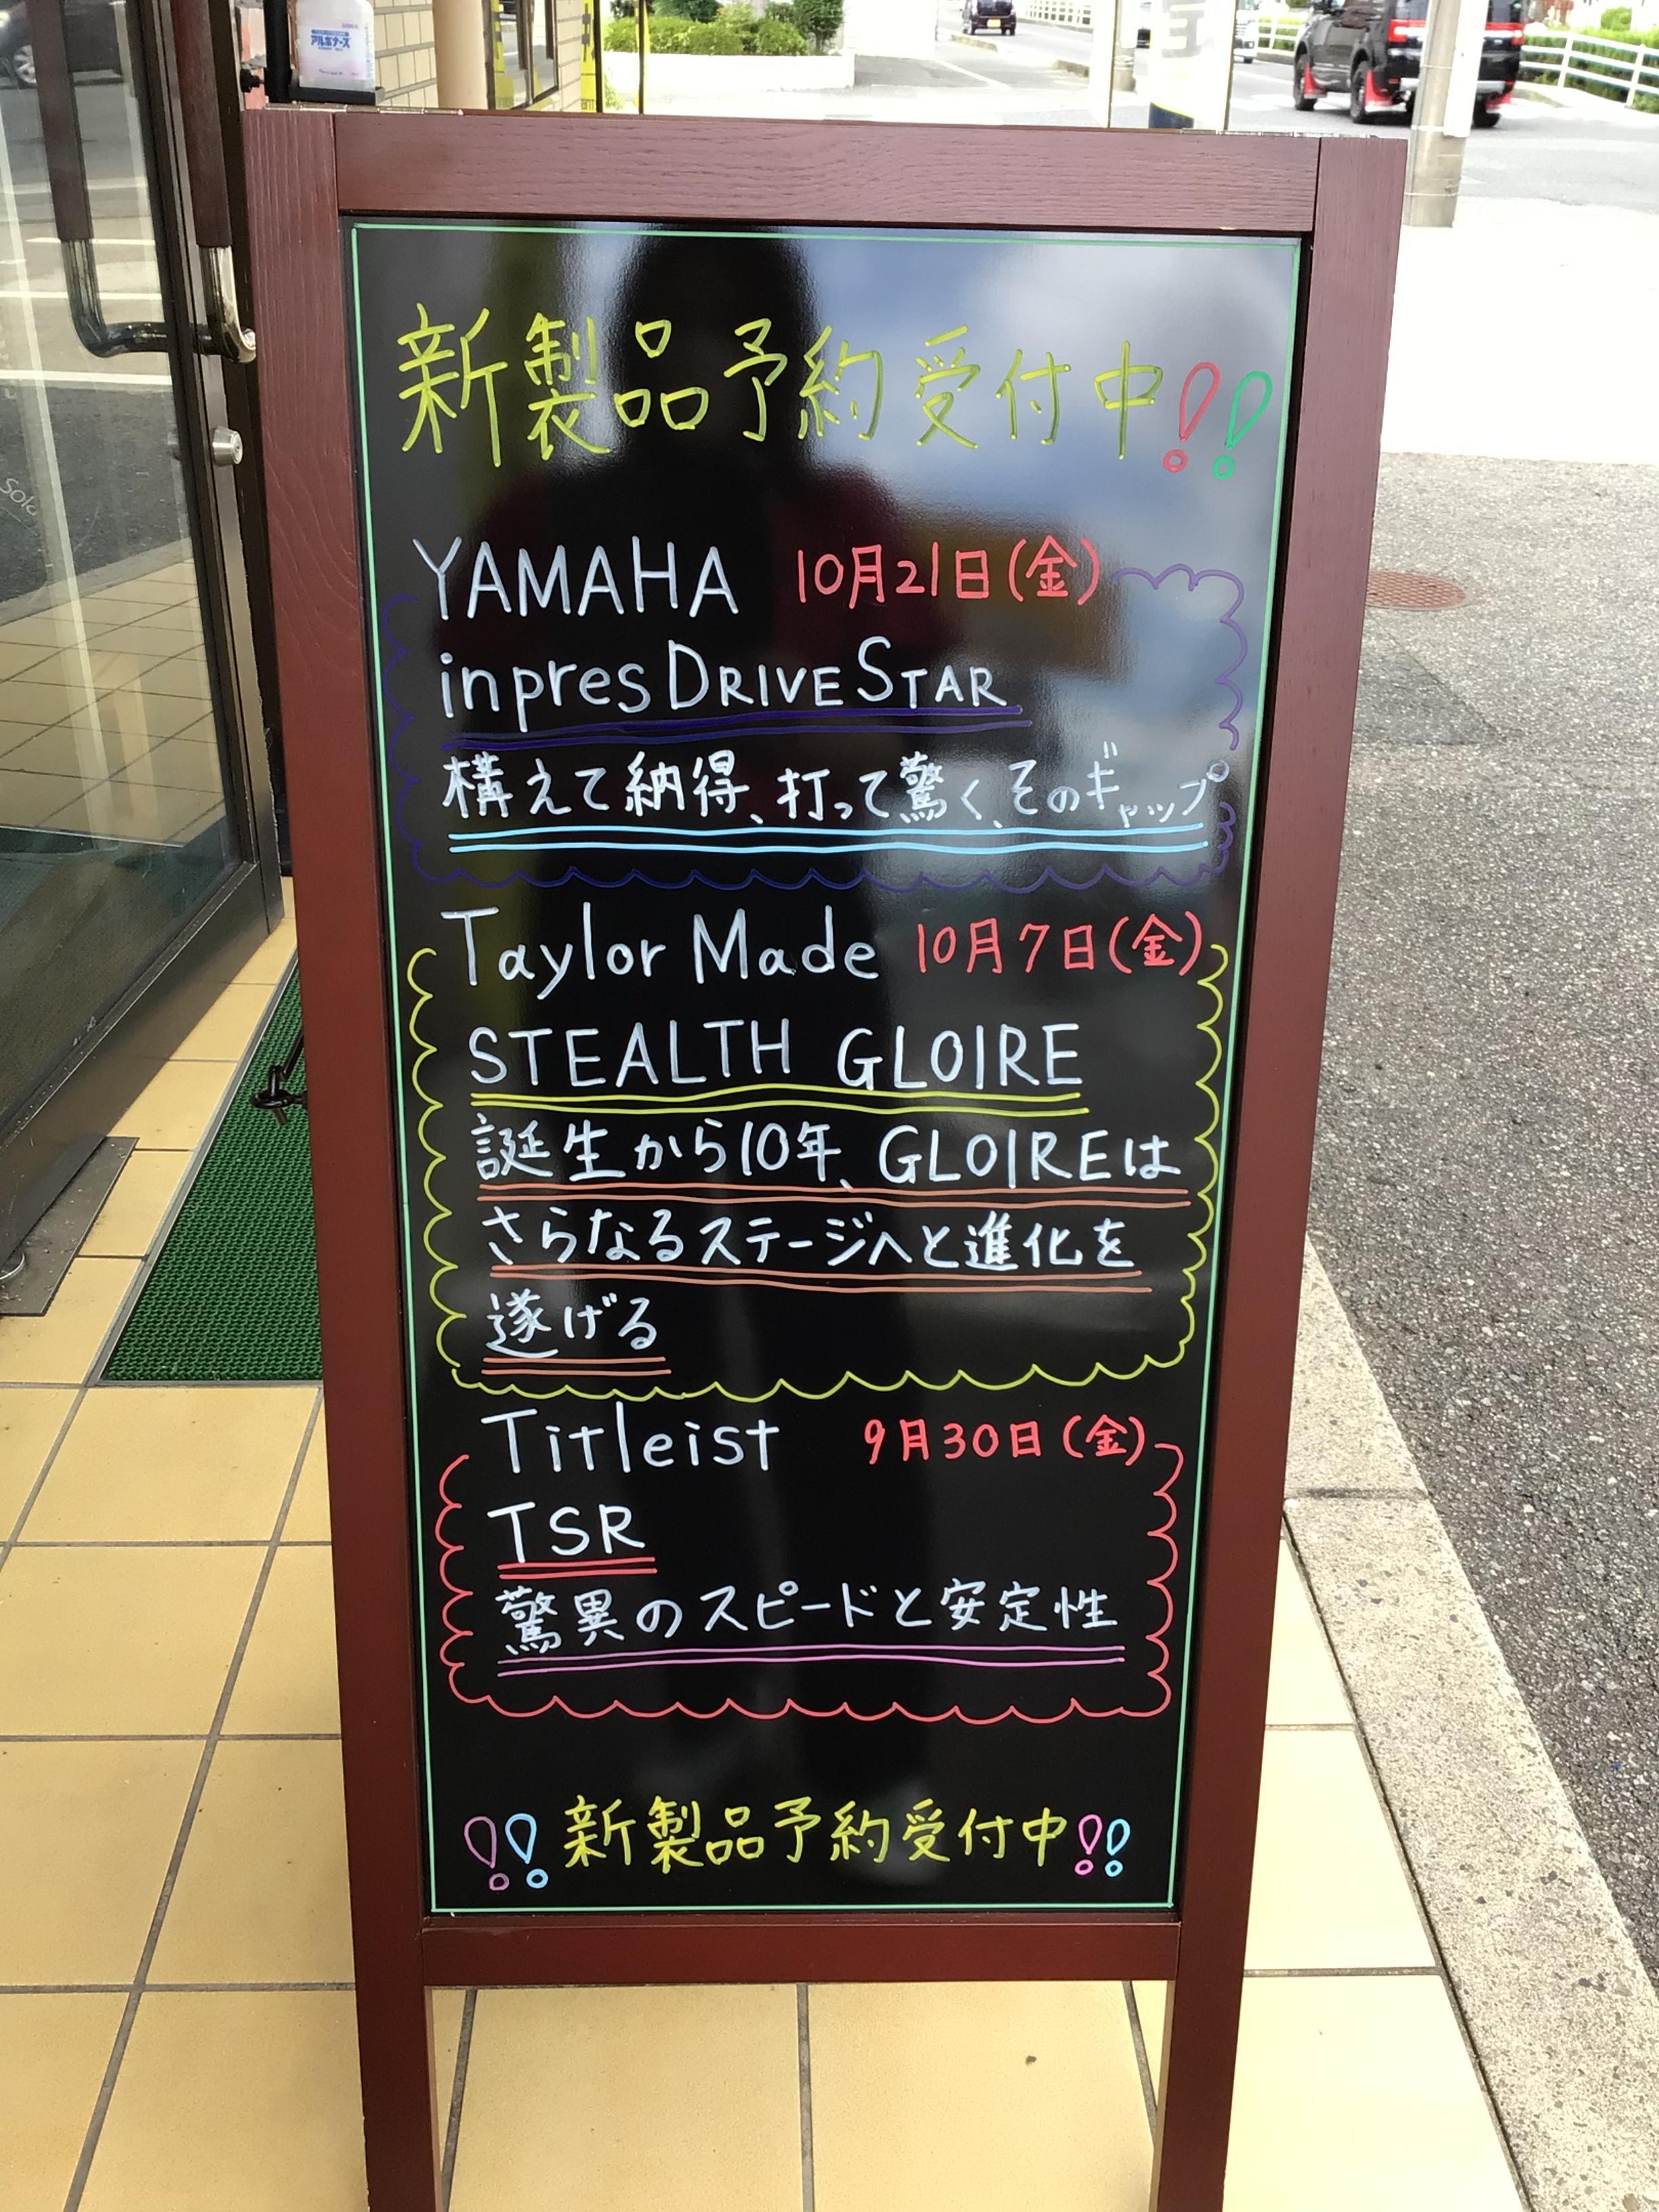 アルボナース
新製品予約受付中!!
YAMAHA 10月21日(金)
inpres DRIVE STAR
構えて納得、打って驚く、そのギャップ
Taylor Made 10月7日(金)
STEALTH GLOIRE
誕生から10年、GLOIREは
さらなるステージへと進化を
遂げる
Titleist 9月30日(金)
TSR
驚異のスピードと安定性
!!新製品予約受付中!!